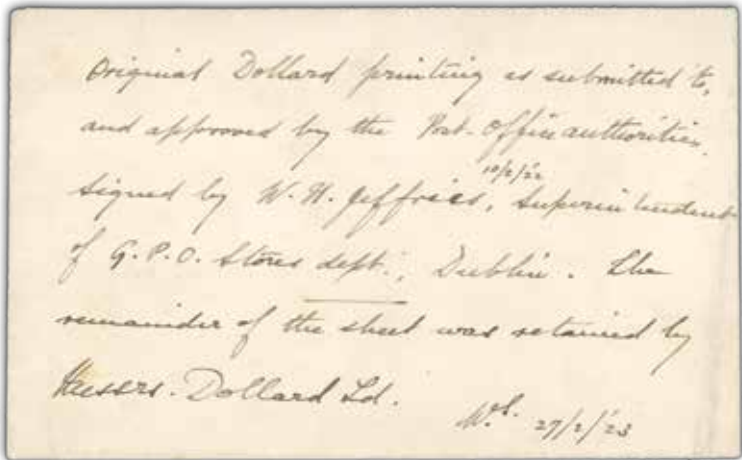 Original Dollard printing as submitted to,
and approved by the Post-Office authorities.
10/2/22
Signed by W. H. Jeffries, Superintendent
of G.P.O. Stores dept., Dublin. The
remainder of the sheet was retained by
Messrs. Dollard Ld.
27/2/23